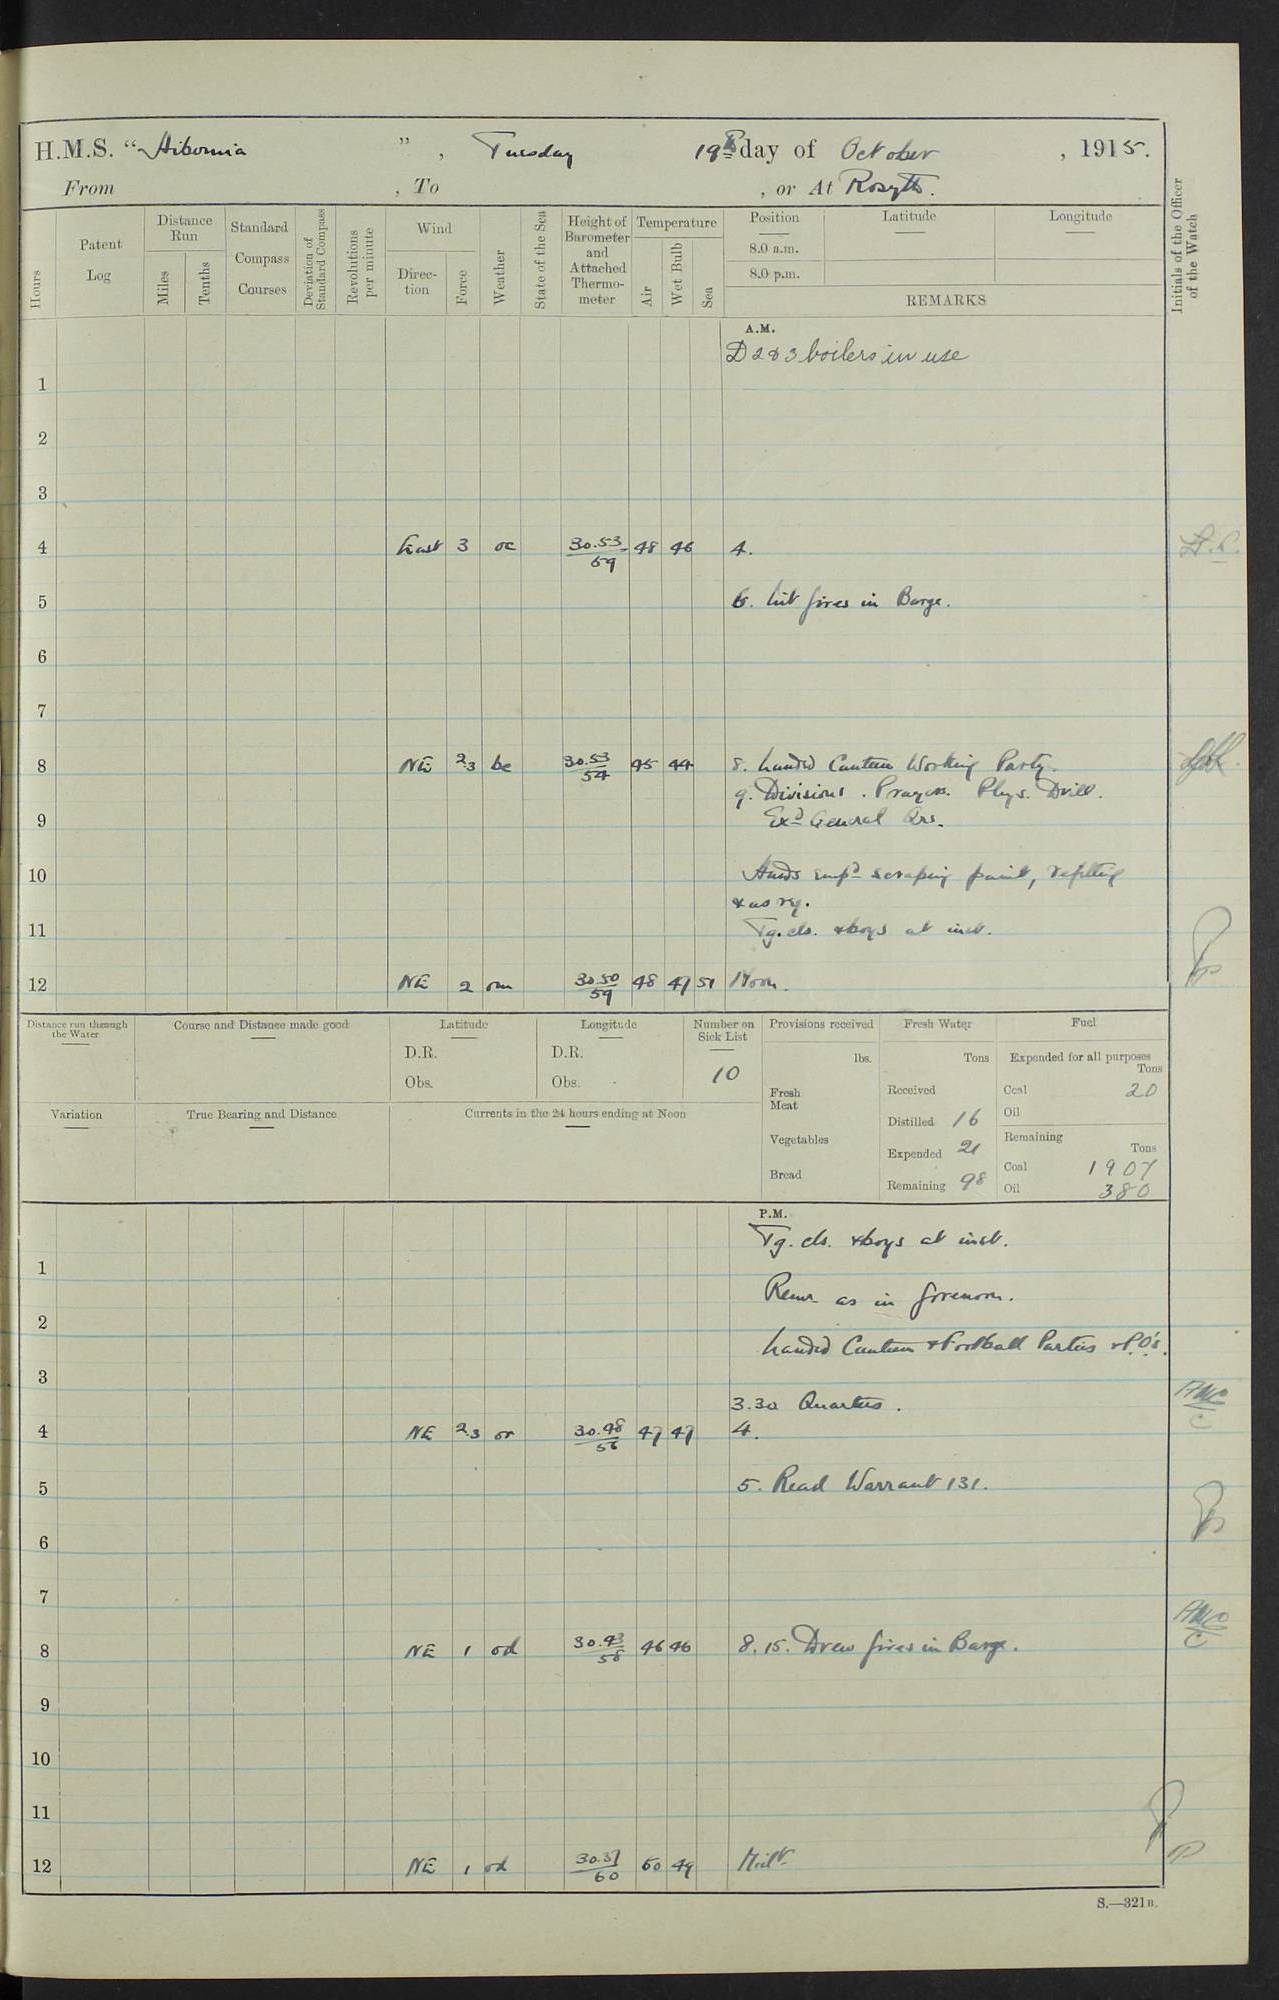 H.M.S. “Hibernia ” , Tuesday 19th day of October , 1915.
From , To , or At Rosyth.
Hours
Patent Log
Distance Run
Miles
Tenths
Standard Compass Courses
Deviation of Standard Compass
Revolutions per minute
Wind
Direc-tion
Force
Weather
State of the Sea
Height of Barometer and Attached Thermo-meter
Temperature
Air
Wet Bulb
Sea
Position
Latitude
Longitude
8.0 a.m.
8.0 p.m.
REMARKS
Initials of the Officer of the Watch
A.M.
D 2 & 3 boilers in use
1
2
3
4 East 3 oc 30.53 59 48 46 4.
5 6. Lit fires in Barge.
6
7
8 NE 2.3 bc 30.53 54 45 44 8. Landed Canteen Working Party.
9. Divisions. Prayers. Phys. Drill.
9 Exd General Qrs.
10 Hands empd scraping paint, refitting
& as req.
11 Tg. cls. & boys at inst.
12 NE 2 om 30.50 59 48 47 51 Noon.
Distance run through the Water
Course and Distance made good
Latitude
D.R.
Obs.
Longitude
D.R.
Obs.
Number on Sick List
10
Provisions received
lbs.
Fresh Meat
Vegetables
Bread
Fresh Water
Tons
Received
Distilled 16
Expended 21
Remaining 98
Fuel
Expended for all purposes
Tons
Coal 20
Oil
Remaining
Tons
Coal 1907
Oil 380
Variation
True Bearing and Distance
Currents in the 24 hours ending at Noon
P.M.
Tg. cls. & boys at inst.
1
Remr as in forenoon.
2
Landed Canteen & Football Parties & P.O's.
3
3.30 Quarters.
4 NE 2.3 or 30.48 56 47 47 4.
5 5. Read Warrant 131.
6
7
8 NE 1 od 30.43 58 46 46 8.15. Drew fires in Barge.
9
10
11
12 NE 1 od 30.37 60 50 49 Midt
S.—321B.